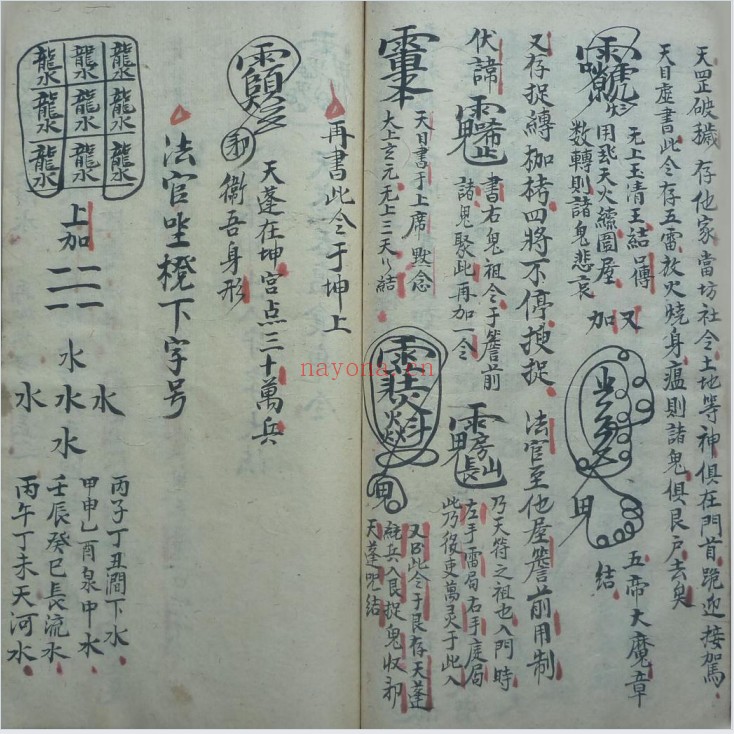 天罡破穢 存他家當坊社令土地等神俱在門首跪迎接駕
天目虛書此令存五雷放火燒身瘟則諸鬼俱艮户去矣
无上玉清王結口傳
用我天火繞圍屋
數轉則諸鬼悲哀
又加
五帝大魔章
結
又存捉縛枷栲四將不停搜捉
法官至他屋簷前用制
伏諱
書右鬼祖令于簷前
諸鬼聚此再加一令
乃天符之祖也入門時
左手雷局右手
局
此乃役更萬灵于此入
天目書于上席 默念
大上玄元无上三天
結
又
此令于艮存天蓬
兵入艮捉鬼收
天蓬咒結
再書此令于坤上
天蓬在坤宮点三十萬兵
衛吾身形
法官坐櫈下字号
龍水 龍水 龍水
龍水 龍水 龍水
龍水 龍水 龍水
上加
水
水 水 水
水
丙子丁丑澗下水
甲申乙酉泉中水
壬辰癸巳長流水
丙午丁未天河水
nayona.cn